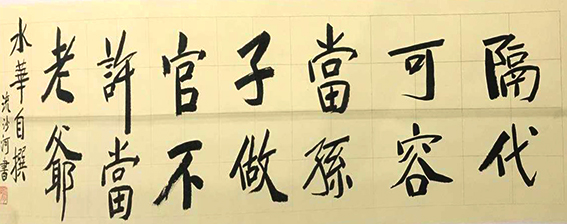 隔代
可容
當孫
子做
官不
許當
老爺
水華自撰
洗沙河書